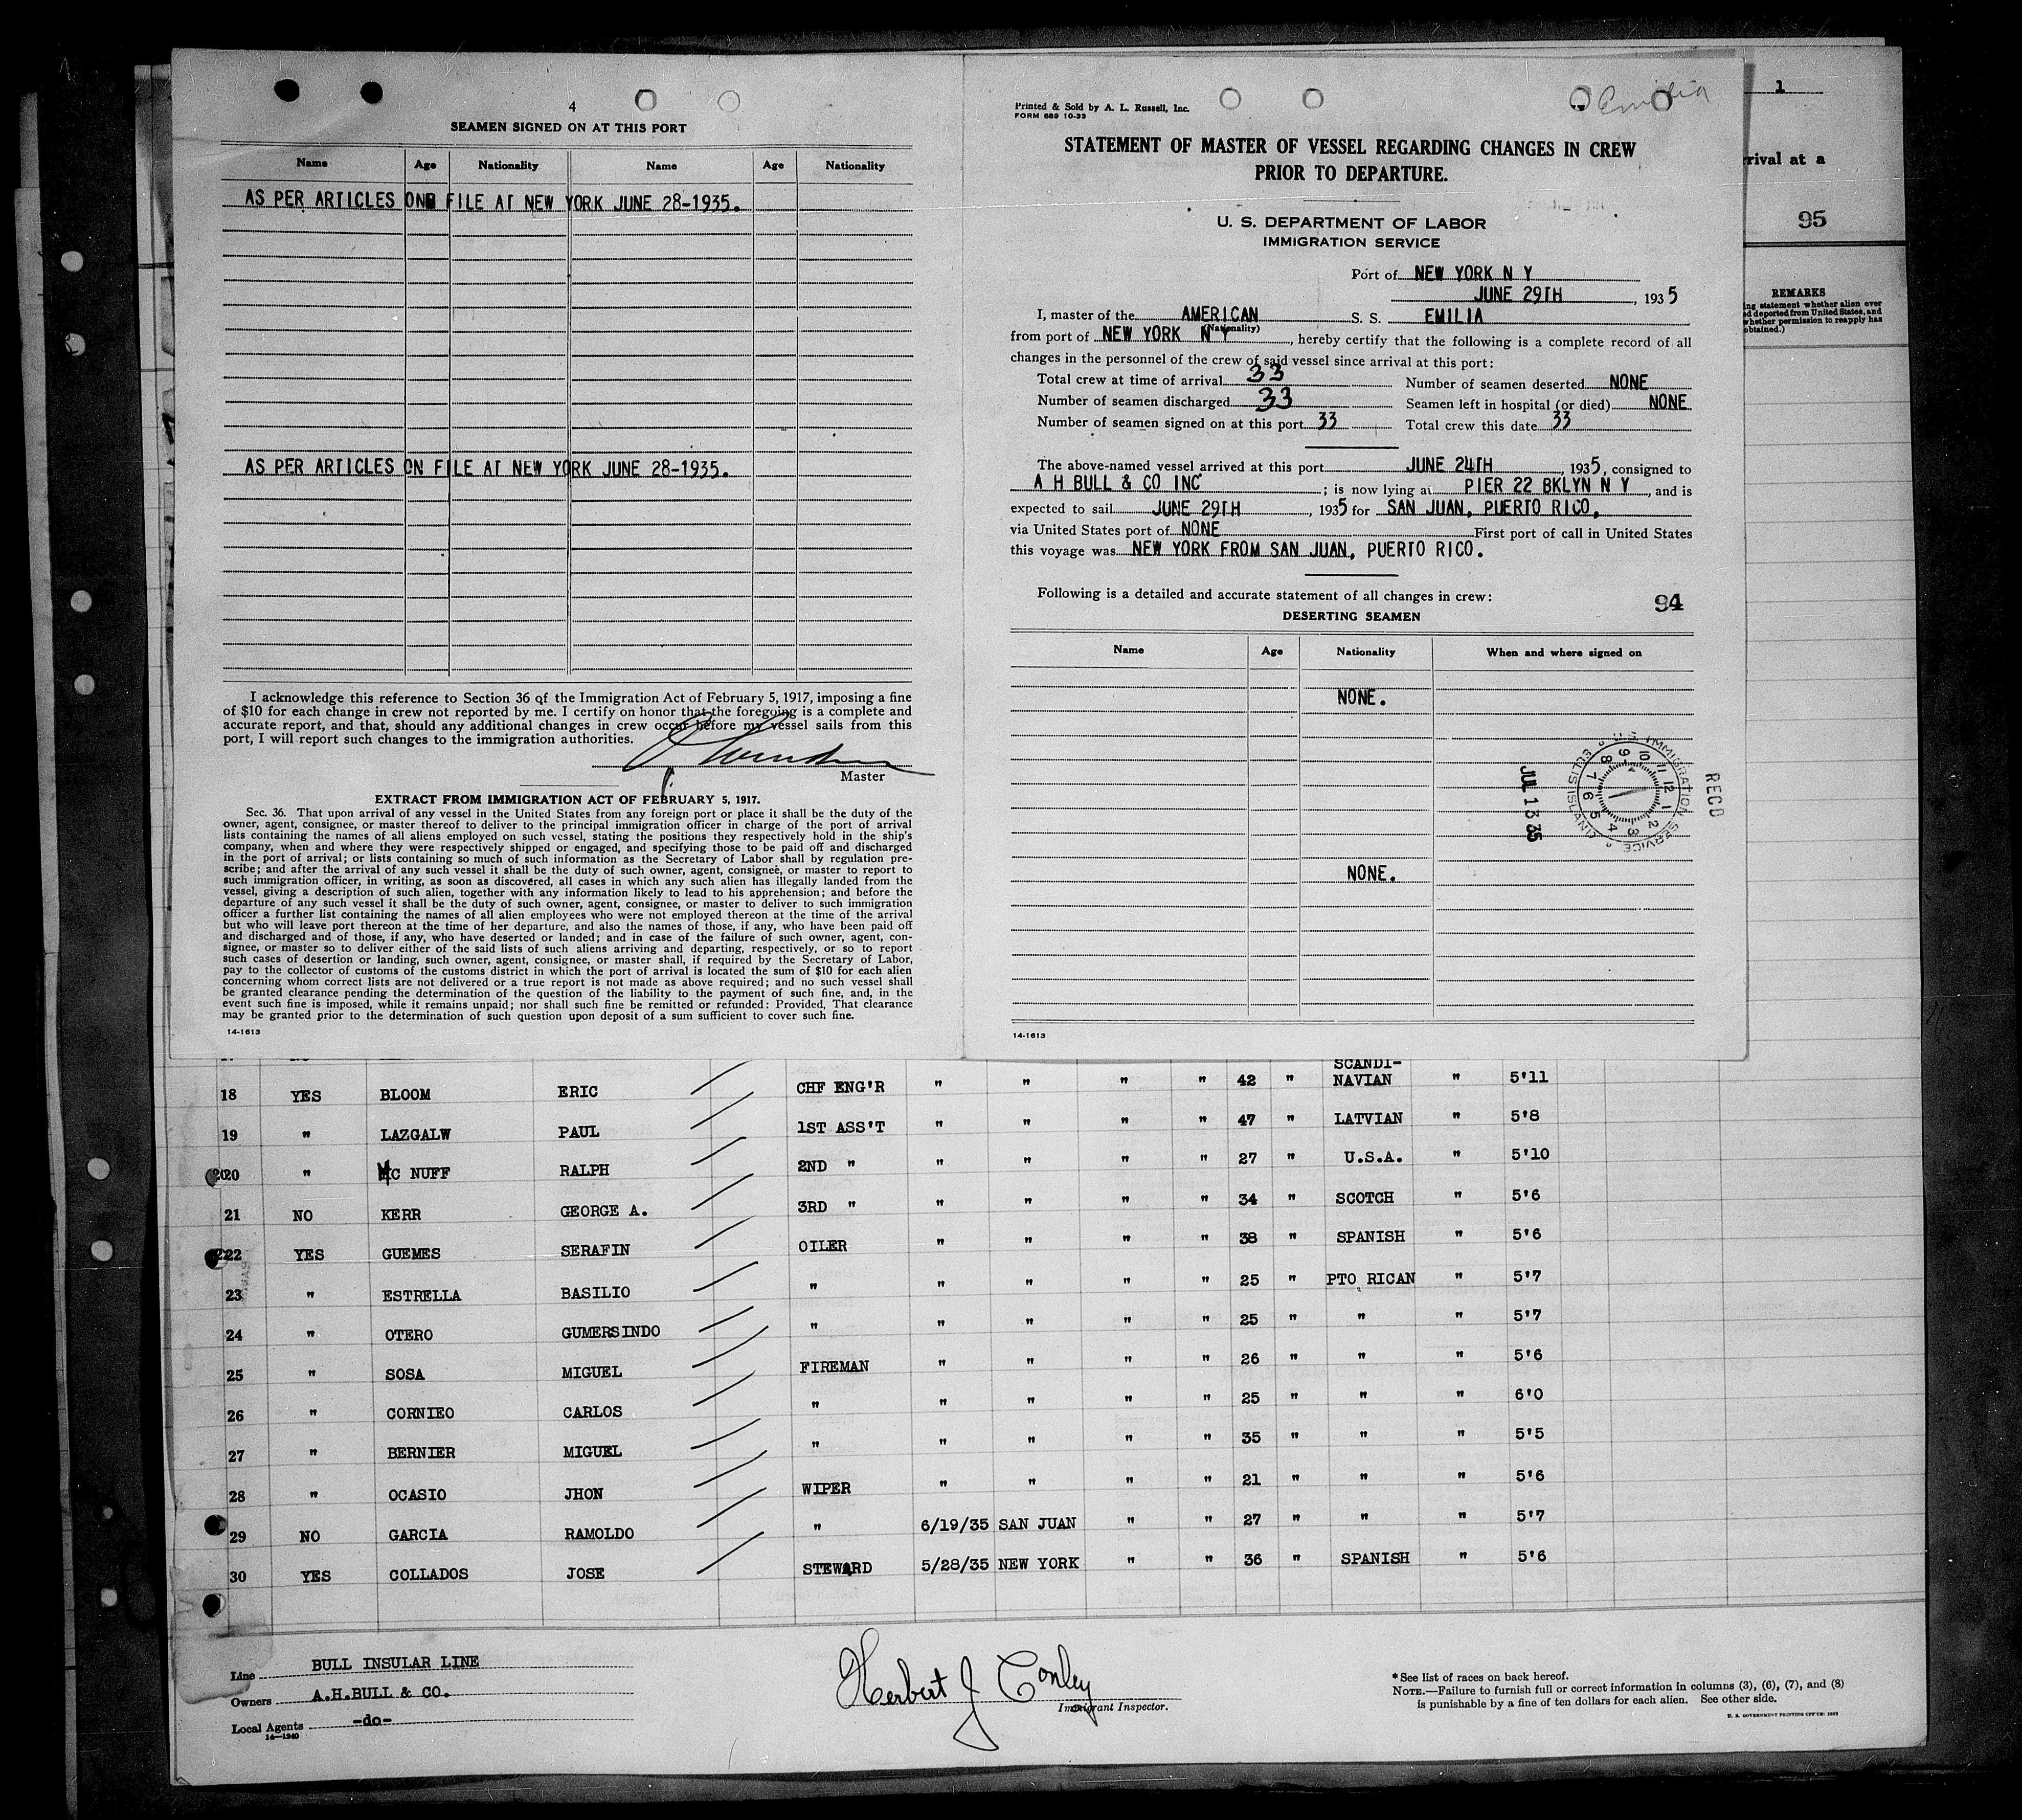 4
SEAMEN SIGNED ON AT THIS PORT
Name Age Nationality Name Age Nationality
AS PER ARTICLES ON FILE AT NEW YORK JUNE 28-1935.
AS PER ARTICLES ON FILE AT NEW YORK JUNE 28-1935.
I acknowledge this reference to Section 36 of the Immigration Act of February 5, 1917, imposing a fine
of $10 for each change in crew not reported by me. I certify on honor that the foregoing is a complete and
accurate report, and that, should any additional changes in crew occur before my vessel sails from this
port, I will report such changes to the immigration authorities.
Master
EXTRACT FROM IMMIGRATION ACT OF FEBRUARY 5, 1917.
Sec. 36. That upon arrival of any vessel in the United States from any foreign port or place it shall be the duty of the
owner, agent, consignee, or master thereof to deliver to the principal immigration officer in charge of the port of arrival
lists containing the names of all aliens employed on such vessel, stating the positions they respectively hold in the ship's
company, when and where they were respectively shipped or engaged, and specifying those to be paid off and discharged
in the port of arrival; or lists containing so much of such information as the Secretary of Labor shall by regulation pre-
scribe; and after the arrival of any such vessel it shall be the duty of such owner, agent, consignee, or master to report to
such immigration officer, in writing, as soon as discovered, all cases in which any such alien has illegally landed from the
vessel, giving a description of such alien, together with any information likely to lead to his apprehension; and before the
departure of any such vessel it shall be the duty of such owner, agent, consignee, or master to deliver to such immigration
officer a further list containing the names of all alien employees who were not employed thereon at the time of the arrival
but who will leave port thereon at the time of her departure, and also the names of those, if any, who have been paid off
and discharged and of those, if any, who have deserted or landed; and in case of the failure of such owner, agent, con-
signee, or master so to deliver either of the said lists of such aliens arriving and departing, respectively, or so to report
such cases of desertion or landing, such owner, agent, consignee, or master shall, if required by the Secretary of Labor,
pay to the collector of customs of the customs district in which the port of arrival is located the sum of $10 for each alien
concerning whom correct lists are not delivered or a true report is not made as above required; and no such vessel shall
be granted clearance pending the determination of the question of the liability to the payment of such fine, and, in the
event such fine is imposed, while it remains unpaid; nor shall such fine be remitted or refunded: Provided, That clearance
may be granted prior to the determination of such question upon deposit of a sum sufficient to cover such fine.
14-1613
Printed & Sold by A. L. Russell, Inc.
FORM 689 10-33
Emilia
STATEMENT OF MASTER OF VESSEL REGARDING CHANGES IN CREW
PRIOR TO DEPARTURE.
U. S. DEPARTMENT OF LABOR
IMMIGRATION SERVICE
Port of NEW YORK N Y
JUNE 29TH, 1935
I, master of the AMERICAN S. S. EMILIA
(Nationality)
from port of NEW YORK N Y, hereby certify that the following is a complete record of all
changes in the personnel of the crew of said vessel since arrival at this port:
Total crew at time of arrival 33 Number of seamen deserted NONE
Number of seamen discharged 33 Seamen left in hospital (or died) NONE
Number of seamen signed on at this port 33 Total crew this date 33
The above-named vessel arrived at this port JUNE 24TH, 1935, consigned to
A H BULL & CO INC; is now lying at PIER 22 BKLYN N Y, and is
expected to sail JUNE 29TH, 1935 for SAN JUAN, PUERTO RICO,
via United States port of NONE First port of call in United States
this voyage was NEW YORK FROM SAN JUAN, PUERTO RICO.
Following is a detailed and accurate statement of all changes in crew:
94
DESERTING SEAMEN
Name Age Nationality When and where signed on
NONE.
NONE.
U.S. IMMIGRATION SERVICE ELLIS ISLAND
12 1 2 3 4 5 6 7 8 9 10 11
JUL 1 3 35
RECD
14-1613
1
rrival at a
95
REMARKS
ing statement whether alien ever
ed deported from United States, and
whether permission to reapply has
obtained.)
18 YES BLOOM ERIC CHF ENG'R " " " " 42 " SCANDI-
NAVIAN " 5'11
19 " LAZGALW PAUL 1ST ASS'T " " " " 47 " LATVIAN " 5'8
20 " MC NUFF RALPH 2ND " " " " " 27 " U.S.A. " 5'10
21 NO KERR GEORGE A. 3RD " " " " " 34 " SCOTCH " 5'6
22 YES GUEMES SERAFIN OILER " " " " 38 " SPANISH " 5'6
23 " ESTRELLA BASILIO " " " " " 25 " PTO RICAN " 5'7
24 " OTERO GUMERSINDO " " " " " 25 " " " 5'7
25 " SOSA MIGUEL FIREMAN " " " " 26 " " " 5'6
26 " CORNIEO CARLOS " " " " " 25 " " " 6'0
27 " BERNIER MIGUEL " " " " " 35 " " " 5'5
28 " OCASIO JHON WIPER " " " " 21 " " " 5'6
29 NO GARCIA RAMOLDO " 6/19/35 SAN JUAN " " 27 " " " 5'7
30 YES COLLADOS JOSE STEWARD 5/28/35 NEW YORK " " 36 " SPANISH " 5'6
Line BULL INSULAR LINE
Owners A.H.BULL & CO.
Local Agents -do-
14-1240
Herbert J Conley
Immigrant Inspector.
*See list of races on back hereof.
NOTE.—Failure to furnish full or correct information in columns (3), (6), (7), and (8)
is punishable by a fine of ten dollars for each alien. See other side.
U. S. GOVERNMENT PRINTING OFFICE: 1931